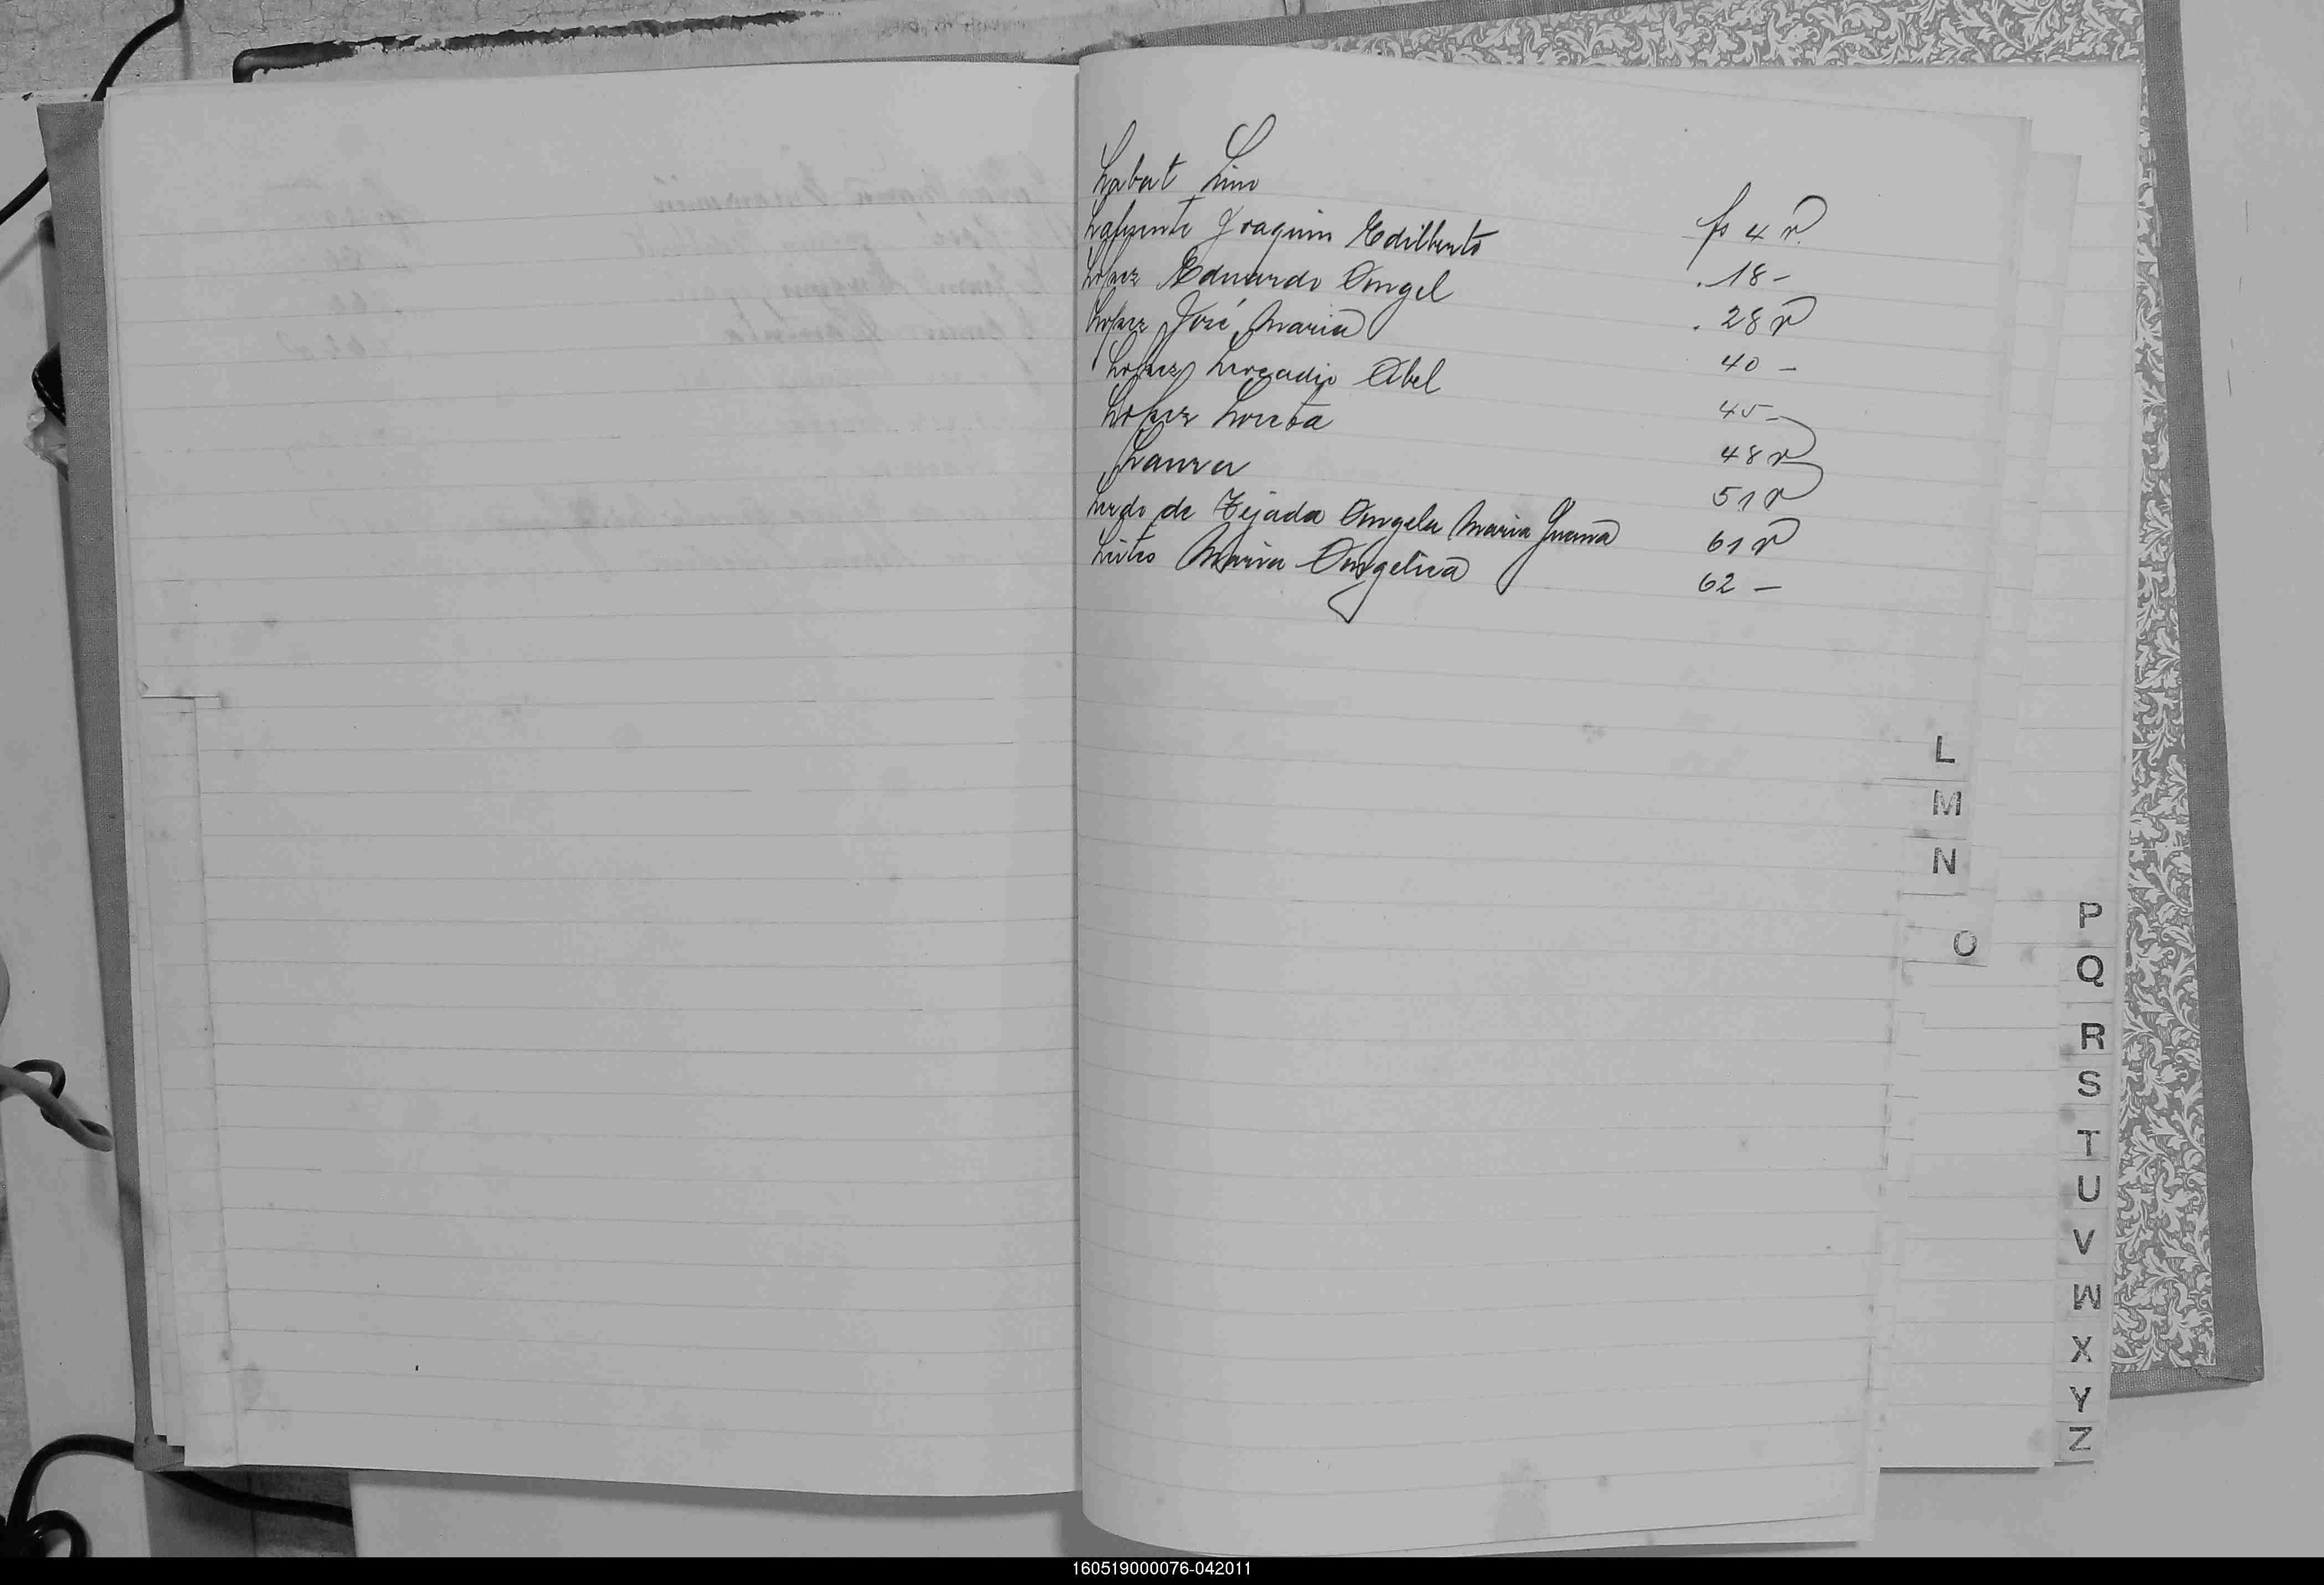 Labat Lino fs 4 v
Lafuente Joaquin Edilberto .18-
Lopez Eduardo Angel .28 v
Lopez José Maria 40 -
Lopez Leocadio Abel 45-
Lopez Loreta 48 v
Laura 51 v
Lerdo de Tejada Angela Maria Juana 61 v
Leites Maria Angelica 62 -
L
M
N
O
P
Q
R
S
T
U
V
W
X
Y
Z
160519000076-042011